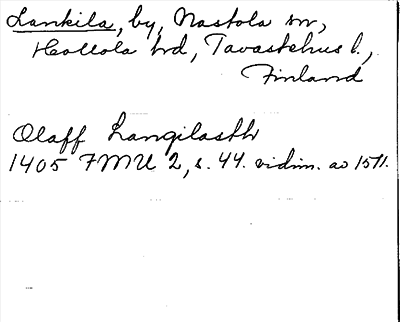 Lankila, by, Nastola sn,
Hollola hd, Tavastehus l.,
Finland
Olaff Langilasth
1405 FMU 2, s. 44. vidim. av 1511.